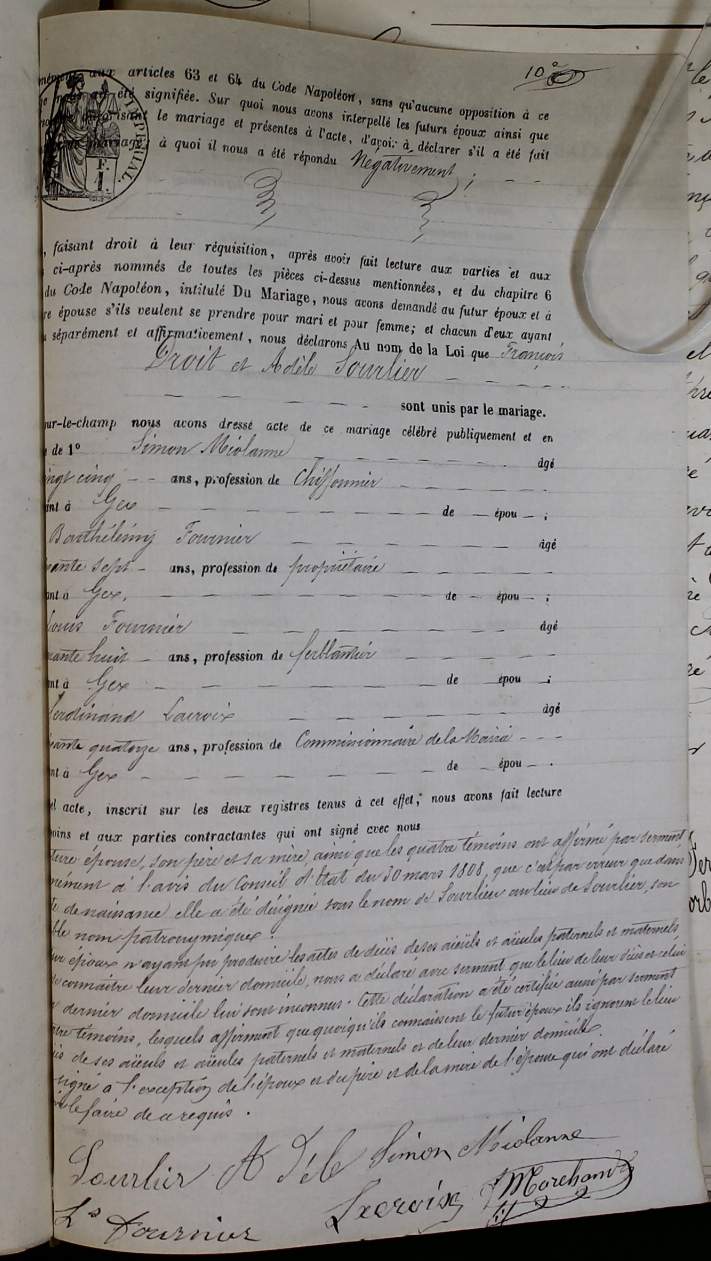 10°
aux articles 63 et 64 du Code Napoléon, sans qu'aucune opposition à ce
été signifiée. Sur quoi nous avons interpellé les futurs époux ainsi que
le mariage et présentes à l'acte, d'avoir à déclarer s'il a été fait
mariage, à quoi il nous a été répondu Négativement ;
IMPERIAL
F.
1.
, faisant droit à leur réquisition, après avoir fait lecture aux parties et aux
ci-après nommés de toutes les pièces ci-dessus mentionnées, et du chapitre 6
du Code Napoléon, intitulé Du Mariage, nous avons demandé au futur époux et à
re épouse s'ils veulent se prendre pour mari et pour femme; et chacun d'eux ayant
séparément et affirmativement, nous déclarons Au nom de la Loi que François
Droit et Adèle Sourlier
sont unis par le mariage.
ur-le-champ nous avons dressé acte de ce mariage célébré publiquement et en
de 1° Simon Miolanne âgé
ingt cinq ans, profession de Chiffonnier
ant à Gex de épou ;
Barthélémy Fournier âgé
ante sept ans, profession de propriétaire
ant à Gex, de épou ;
Louis Fournier âgé
ante huit ans, profession de ferblantier
nt à Gex de épou ;
Ferdinand Lacroix âgé
ante quatorze ans, profession de Commissionnaire de la Mairie
nt à Gex de épou .
el acte, inscrit sur les deux registres tenus à cet effet, nous avons fait lecture
oins et aux parties contractantes qui ont signé avec nous
ture épouse, son père et sa mère, ainsi que les quatre témoins ont affirmé par serment,
mément à l'avis du Conseil d'Etat du 30 mars 1808, que c'est par erreur que dans
de naissance elle a été désignée sous le nom de Sourlier au lieu de Sourlier, son
ble nom patronymique.
ur époux n'ayant pu produire les actes de décès de ses aïeuls et aïeules paternels et maternels
connaître leur dernier domicile, nous a déclaré avec serment que le lieu de leur décès et celui
dernier domicile lui sont inconnus. Cette déclaration a été certifiée aussi par serment
tre témoins, lesquels affirment que quoiqu'ils connaissent le futur époux ils ignorent le lieu
ès de ses aïeuls et aïeules paternels et maternels et de leur dernier domicile.
signé à l'exception de l'époux et du père et de la mère de l'épouse qui ont déclaré
le faire de ce requis.
Sourlier Adèle Simon Miolanne
Ls Fournier Lacroix Marchand